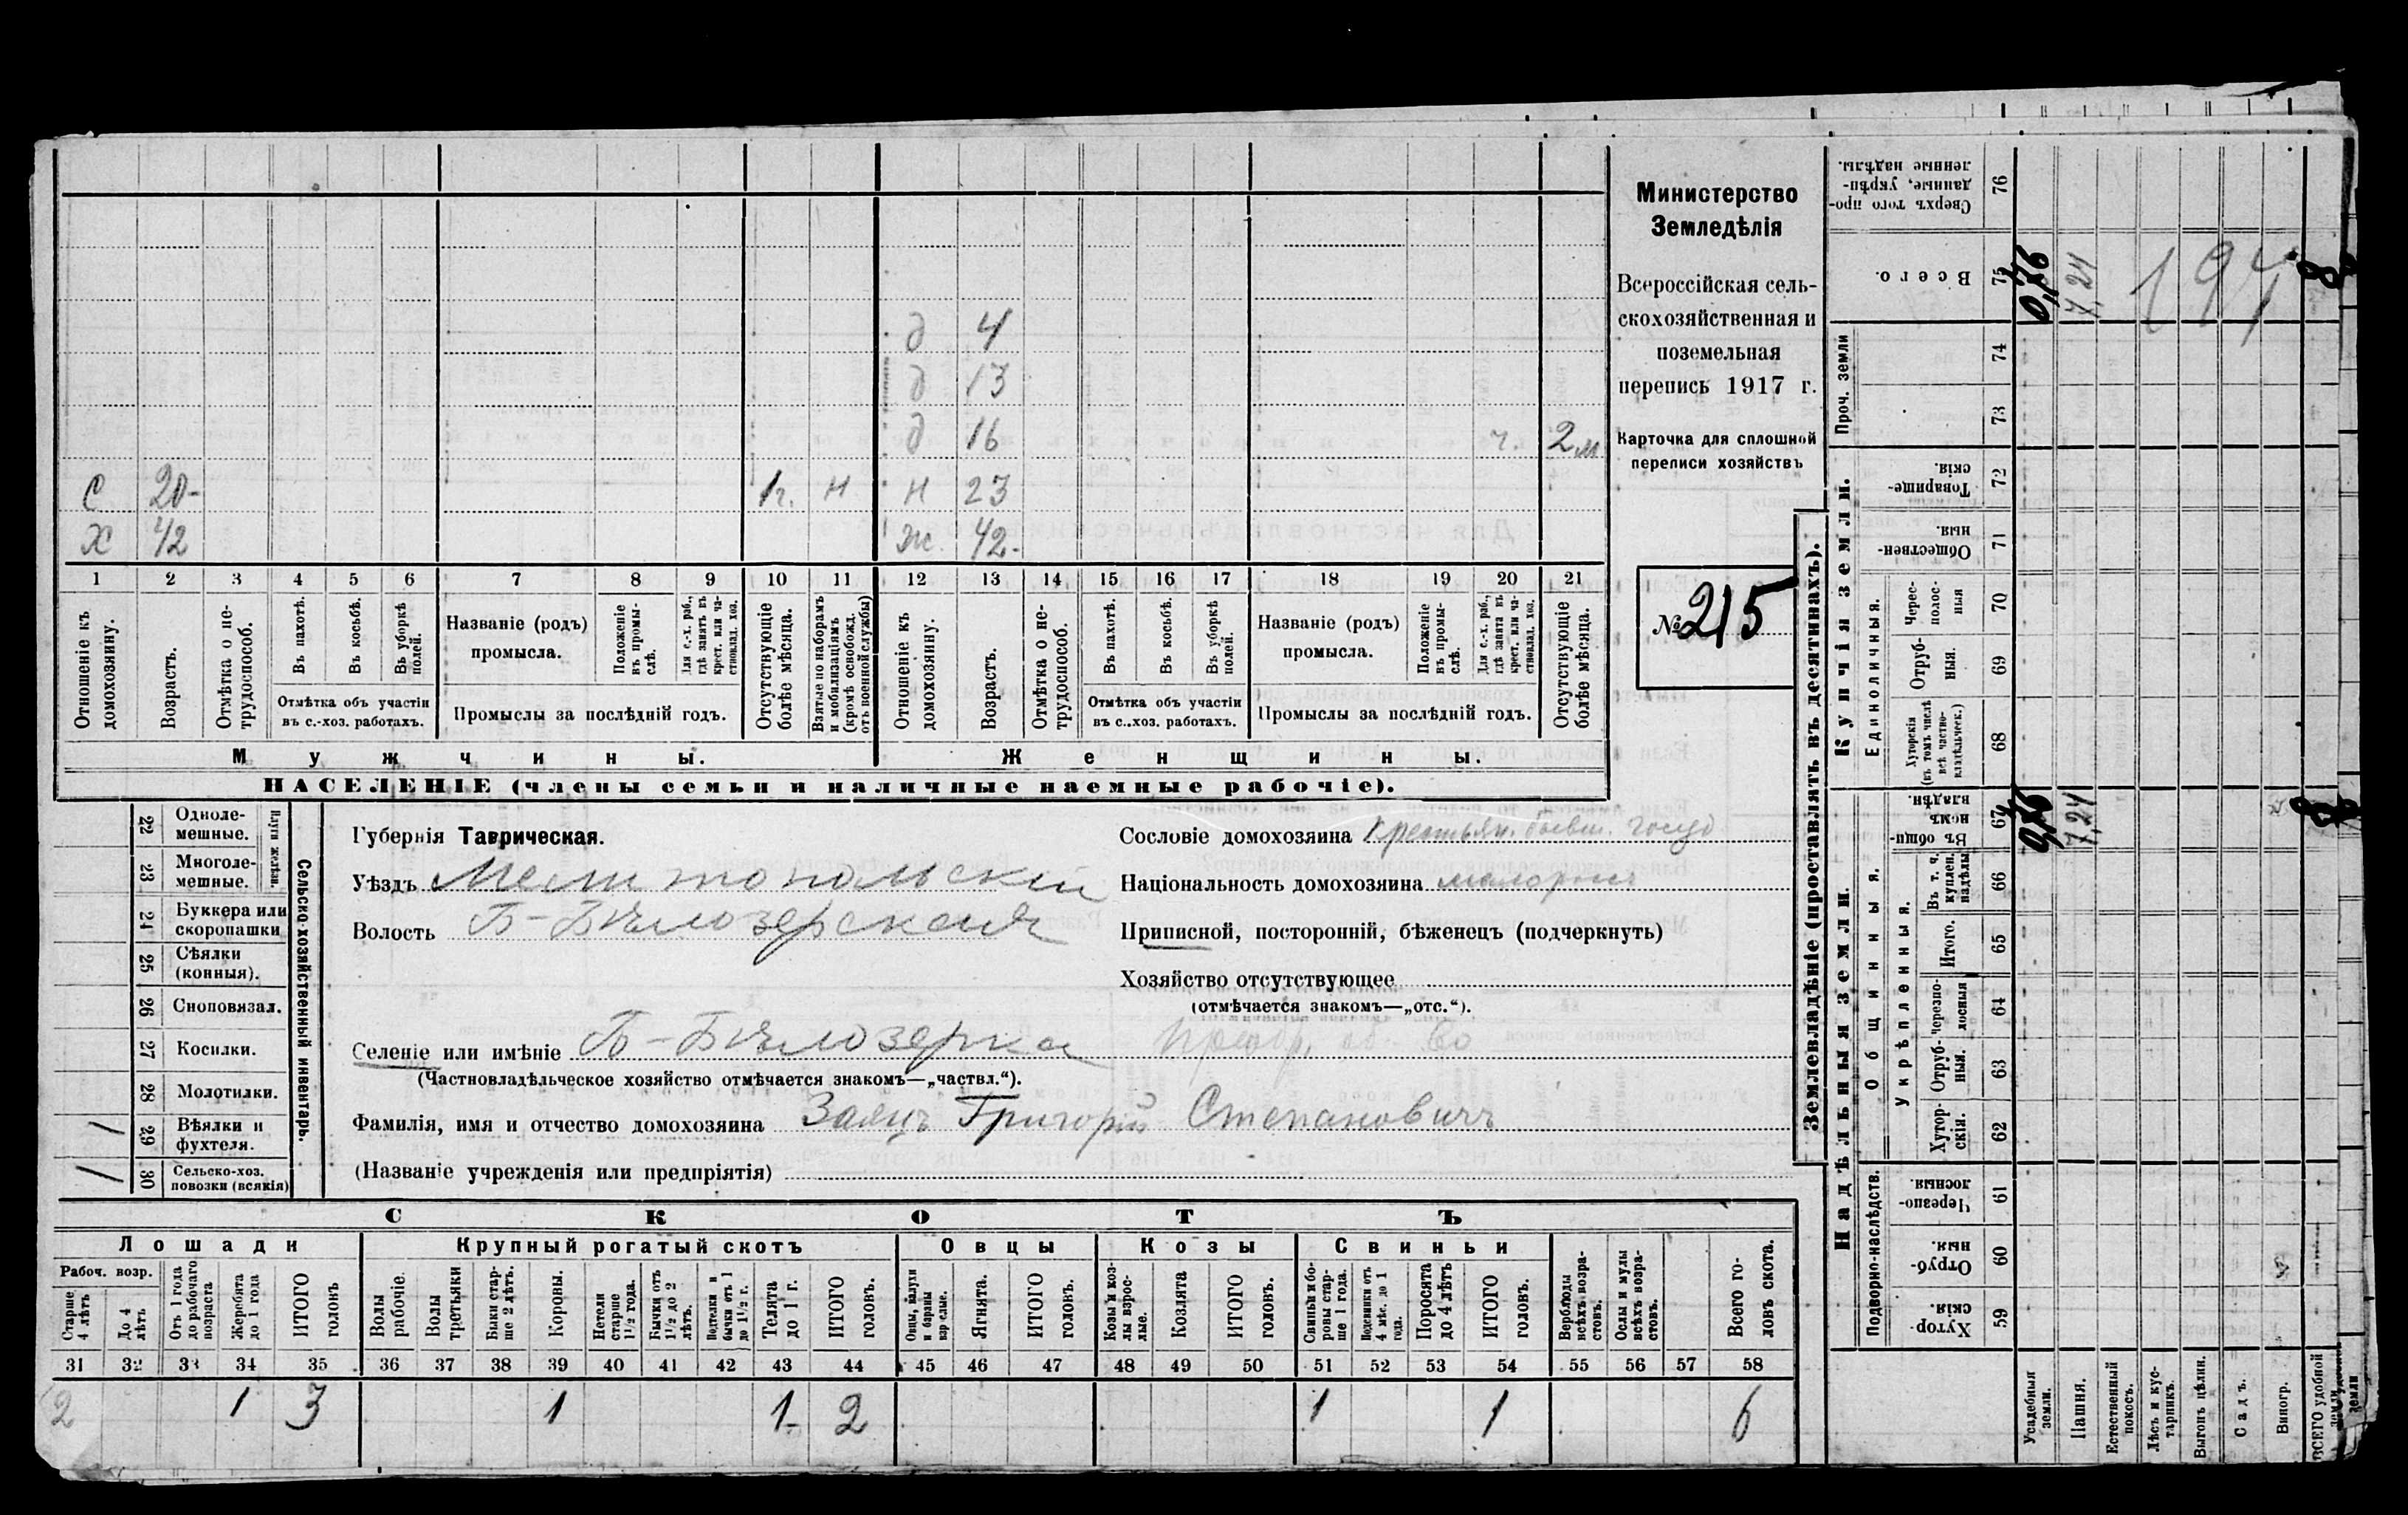 д 4
д 13
д 16 ч. 2 м
С 20- 1г. Н Н 23
Х 42 Ж. 42-
1 2 3 4 5 6 7 8 9 10 11 12 13 14 15 16 17 18 19 20 21
Отношеніе къ домохозяину.
Возрастъ.
Отмѣтка о не-
трудоспособ.
Въ пахотѣ.
Въ косьбѣ.
Въ уборкѣ
полей.
Отмѣтка объ участіи
въ с.-хоз. работахъ.
Названіе (родъ)
промысла.
Положеніе
въ промы-
слѣ.
Для с.-х. раб.,
гдѣ занятъ въ
крест. или ча-
стновлад. хоз.
Промыслы за послѣдній годъ.
Отсутствующіе
болѣе мѣсяца.
Взятые по наборамъ
и мобилизаціямъ
(кромѣ освобожд.
отъ военной службы)
Отношеніе къ
домохозяину.
Возрастъ.
Отмѣтка о не-
трудоспособ.
Въ пахотѣ.
Въ косьбѣ.
Въ уборкѣ
полей.
Отмѣтка объ участіи
въ с..хоз. работахъ.
Названіе (родъ)
промысла.
Положеніе
въ промы-
слѣ.
Для с.-х. раб.,
гдѣ занята въ
крест. или ча-
стновлад. хоз.
Промыслы за послѣдній годъ.
Отсутствующіе
болѣе мѣсяца.
Мужчины. Женщины.
НАСЕЛЕНІЕ (члены семьи и наличные наемные рабочіе).
Министерство
Земледѣлія
Всероссійская сель-
скохозяйственная и
поземельная
перепись 1917 г.
Карточка для сплошной
переписи хозяйствъ
№ 215
22 Одноле-
мешные.
23 Многоле-
мешные.
Плуги желѣзн.
24 Буккера или
скоропашки
25 Сѣялки
(конныя).
26 Сноповязал.
27 Косилки.
28 Молотилки.
1 29 Вѣялки и
фухтеля.
1 30 Сельско-хоз.
повозки (всякія)
Сельско-хозяйственный инвентарь.
Губернія Таврическая.
Уѣздъ Мелитопольскій
Волость Б-Бѣлозерская
Селеніе или имѣніе Б-Бѣлозерка
(Частновладѣльческое хозяйство отмѣчается знакомъ—„частвл.“).
Фамилія, имя и отчество домохозяина Заяцъ Григорій Степановичъ
(Названіе учрежденія или предпріятія)
Сословіе домохозяина Крестьян. бывш. госуд
Національность домохозяина малорос
Приписной, посторонній, бѣженецъ (подчеркнуть)
Хозяйство отсутствующее
(отмѣчается знакомъ—„отс.“).
СКОТЪ
Лошади Крупный рогатый скотъ Овцы Козы Свиньи
Рабоч. возр.
Старше
4 лѣтъ
До 4
лѣтъ
Отъ 1 года
до рабочаго
возраста
Жеребята
до 1 года
ИТОГО
головъ
Волы
рабочіе.
Волы
третьяки
Быки стар-
ше 2 лѣтъ.
Коровы.
Нетели
старше
1½ года.
Бычки отъ
1½ до 2
лѣтъ.
Подтелки и
бычки отъ 1
до 1½ г.
Телята
до 1 г.
ИТОГО
головъ.
Овцы, валухи
и бараны
взрослые.
Ягнята.
ИТОГО
головъ.
Козы и коз-
лы взрос-
лые.
Козлята
ИТОГО
головъ.
Свиньи и бо-
ровы стар-
ше 1 года.
Подсвинки отъ
4 мѣс. до 1
года.
Поросята
до 4 лѣтъ
ИТОГО
головъ.
Верблюды
всѣхъ возра-
стовъ.
Ослы и мулы
всѣхъ возра-
стовъ.
Всего го-
ловъ скота.
31 32 33 34 35 36 37 38 39 40 41 42 43 44 45 46 47 48 49 50 51 52 53 54 55 56 57 58
2 1 3 1 1- 2 1 1 6
Землевладѣніе (проставлять въ десятинахъ).
Надѣльныя земли. Купчія земли. Проч. земли
Подворно-наслѣдств. Общинныя. Укрѣпленныя. Единоличныя.
Сверхъ того про-
данные, укрѣп-
ленные надѣлы.
76
Всего.
75 7,24 194
74
73
Товарище-
скія.
72
Обществен-
ныя.
71
Черес-
полос-
ныя
70
Отруб-
ныя.
69
Хуторскія
(въ томъ числѣ
всѣ частно-
владѣльческ.)
68
Въ общи-
номъ
владѣн.
67 7,24
Въ т. ч.
куплен.
надѣлы
66
Итого.
65
Черезпо-
лосныя
64
Отруб-
ныя.
63
Хутор-
скія.
62
Черезпо-
лосныя.
61
Отруб-
ныя.
60
Хутор-
скія
59
Усадебныя
земли.
Пашня.
Естественный
покосъ.
Лѣсъ и кус-
тарникъ.
Выгонъ цѣлин.
Садъ.
Виногр.
ВСЕГО удобной
земли